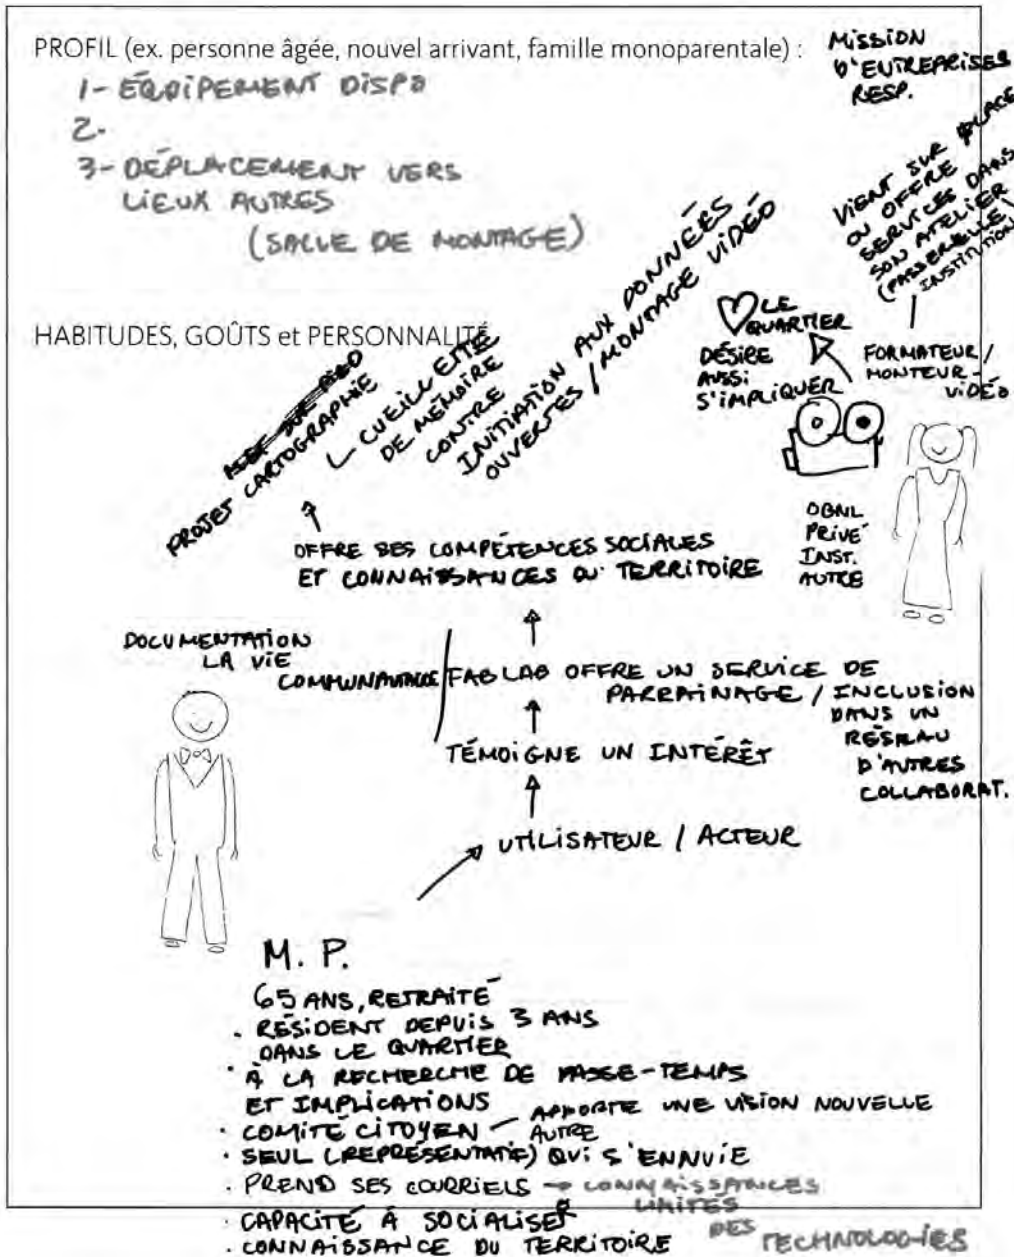 PROFIL (ex. personne âgée, nouvel arrivant, famille monoparentale) :
1- ÉQUIPEMENT DISPO
2-
3- DÉPLACEMENT VERS
LIEUX AUTRES
(SALLE DE MONTAGE)
MISSION
D'ENTREPRISES
RESP.
VIENT SUR PLACE
OU OFFRE
SERVICES DANS
SON ATELIER
(PASSERELLE \
INSTITUTION
HABITUDES, GOÛTS et PERSONNALITÉ
PROJET CARTOGRAPHIE
CUEILLETTE
DE MÉMOIRE
CONTRE
INITIATION AUX DONNÉES
OUVERTES / MONTAGE VIDÉO
LE
QUARTIER
DÉSIRE
AUSSI
S'IMPLIQUER
FORMATEUR /
MONTEUR -
VIDÉO
OBNL
PRIVÉ
INST.
AUTRE
OFFRE SES COMPÉTENCES SOCIALES
ET CONNAISSANCES DU TERRITOIRE
DOCUMENTATION
LA VIE
COMMUNAUTAIRE
FAB LAB OFFRE UN SERVICE DE
PARRAINAGE / INCLUSION
DANS UN
RÉSEAU
D'AUTRES
COLLABORAT.
TÉMOIGNE UN INTÉRÊT
UTILISATEUR / ACTEUR
M. P.
65 ANS, RETRAITÉ
· RÉSIDENT DEPUIS 3 ANS
DANS LE QUARTIER
· À LA RECHERCHE DE PASSE-TEMPS
ET IMPLICATIONS
· COMITÉ CITOYEN - APPORTE UNE VISION NOUVELLE
AUTRE
· SEUL (REPRÉSENTATIF) QUI S'ENNUIE
· PREND SES COURRIELS → CONNAISSANCES
LIMITÉS
DES TECHNOLOGIES
· CAPACITÉ À SOCIALISER
· CONNAISSANCE DU TERRITOIRE